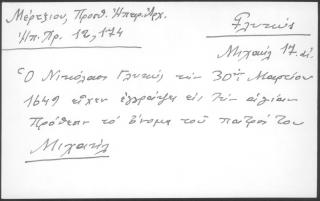 Μέρτζιου, Προσθ. Ηπειρ. Αρχ.
Ηπ. Χρ. 12, 174
Γλυκύς
Μιχαήλ 17. αἰ.
Ὁ Νικόλαος Γλυκύς τήν 30ήν Μαρτίου
1649 εἶχεν ἐγγράψει εἰς τήν ἁγίαν
Πρόθεσιν τό ὄνομα τοῦ πατρός του
Μιχαήλ